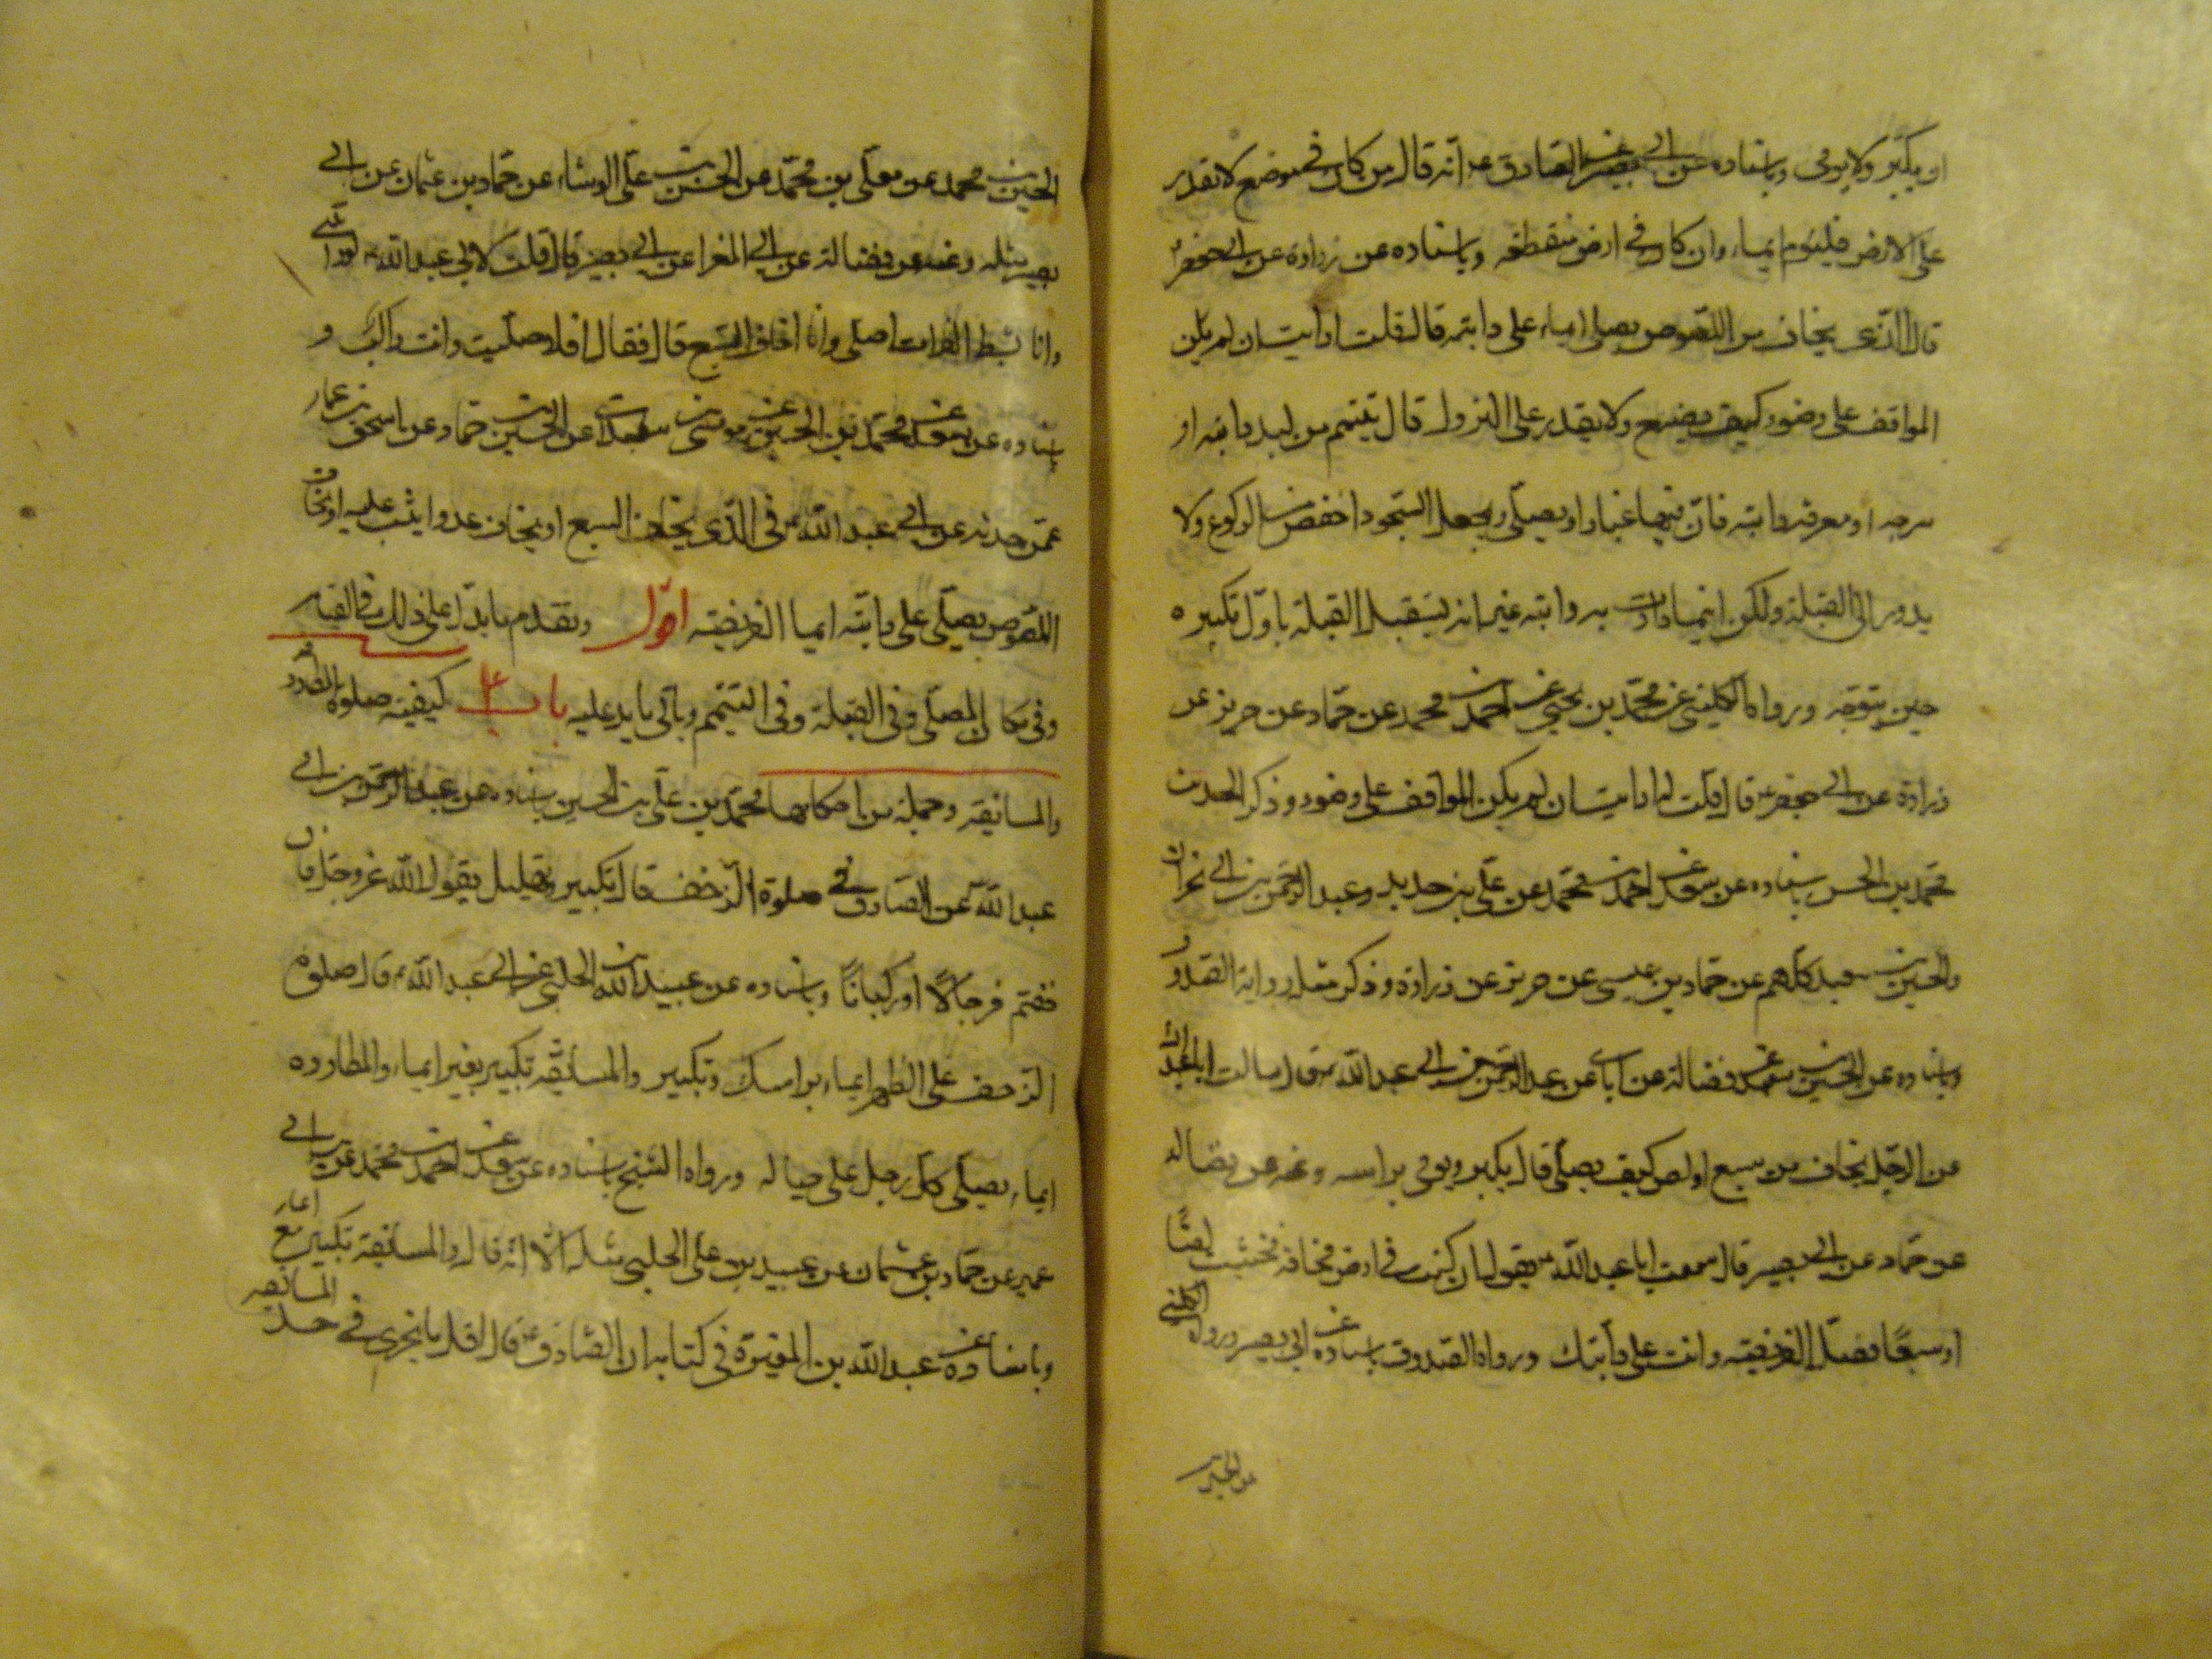 ان يكبر ولا يومى وباسناده عن ابى بصير عن الصادق ع انه قال من كان فى موضع لا يقدر
على الارض فليوم ايماء وان كان فى ارض منقطعه وباسناده عن زرارة عن ابى جعفر ع
قال الذى يخاف من اللصوص يصلى ايماء على دابته قال قلت ارايت ان لم يكن
المواقف على وضوء كيف يصنع ولا يقدر على النزول قال تيمم من لبد دابته او
سرجه او معرفة دابته فان فيها غبارا ويصلى ويجعل السجود اخفض من الركوع ولا
يدور الى القبلة ولكن اينما دارت به دابته غير انه يستقبل القبلة باول تكبيره
حين يتوجه ورواه الكلينى عن محمد بن يحيى عن احمد بن محمد عن حماد عن حريز عن
زرارة عن ابى جعفر ع قال قلت له ارايت ان لم يكن المواقف على وضوء وذكر الحديث
محمد بن الحسن باسناده عن سعد عن احمد بن محمد عن على بن حديد وعبد الرحمن بن ابى نجران
والحسين بن سعيد كلهم عن حماد بن عيسى عن حريز عن زرارة وذكر مثل رواية الصدوق
وباسناده عن الحسين بن سعيد عن فضالة عن ابان عن عبد الرحمن بن ابى عبد الله ع قال سالت ابا عبد الله
عن الرجل يخاف من سبع او لص كيف يصلى قال يكبر ويومى براسه وعنه عن فضاله
عن حماد عن ابى بصير قال سمعت ابا عبد الله ع يقول ان كنت فى ارض مخافة فخشيت لصًا
او سبعًا فصل الفريضه وانت على دابتك ورواه الصدوق باسناده عن ابى بصير ورواه الكلينى
عن الحسين
الحسين بن محمد عن معلى بن محمد عن الحسن بن على الوشاء عن حماد بن عثمان عن ابى
بصير مثله وعنه عن فضالة عن ابى المغرا عن ابى بصير قال قلت لابى عبد الله ع لو رايتنى
وانا بشط الفرات اصلى وانا اخاف السبع قال فقال افلا صليت وانت راكب و
باسناده عن سعد عن محمد بن الحسين عن موسى بن سعدان عن الحسين بن حماد عن اسحق بن عمار
عمن حدثه عن ابى عبد الله ع فى الذى يخاف السبع او يخاف عدوا يثب عليه او يخاف
اللصوص يصلى على دابته ايماء الفريضه اقول وتقدم ما يدل على ذلك فى القيام
وفى مكان المصلى وفى القبلة وفى التيمم وياتى ما يدل عليه باب ٤ كيفية صلوة المطاردة
والمسايفه وجملة من احكامها محمد بن على بن الحسين باسناده عن عبد الرحمن بن ابى
عبد الله عن الصادق ع فى صلوة الزحف قال تكبير وتهليل يقول الله عز وجل فان
خفتم فرجالًا او ركبانًا وباسناده عن عبيد الله بن الحلبى عن ابى عبد الله ع قال صلوة
الزحف على الظهر ايماء براسك وتكبير والمسايفه تكبير بغير ايماء والمطاروه
ايماء يصلى كل رجل على حياله ورواه الشيخ باسناده عن سعد عن احمد بن محمد عن ابن ابى
عمير عن حماد بن عثمان عن عبيد بن على الحلبى مثله الا انه قال والمسايفة تكبير مع ايماء
وباسناده عن عبد الله بن المغيرة فى كتابه ان الصادق ع قال اقل ما يجزى فى حد المسايفه